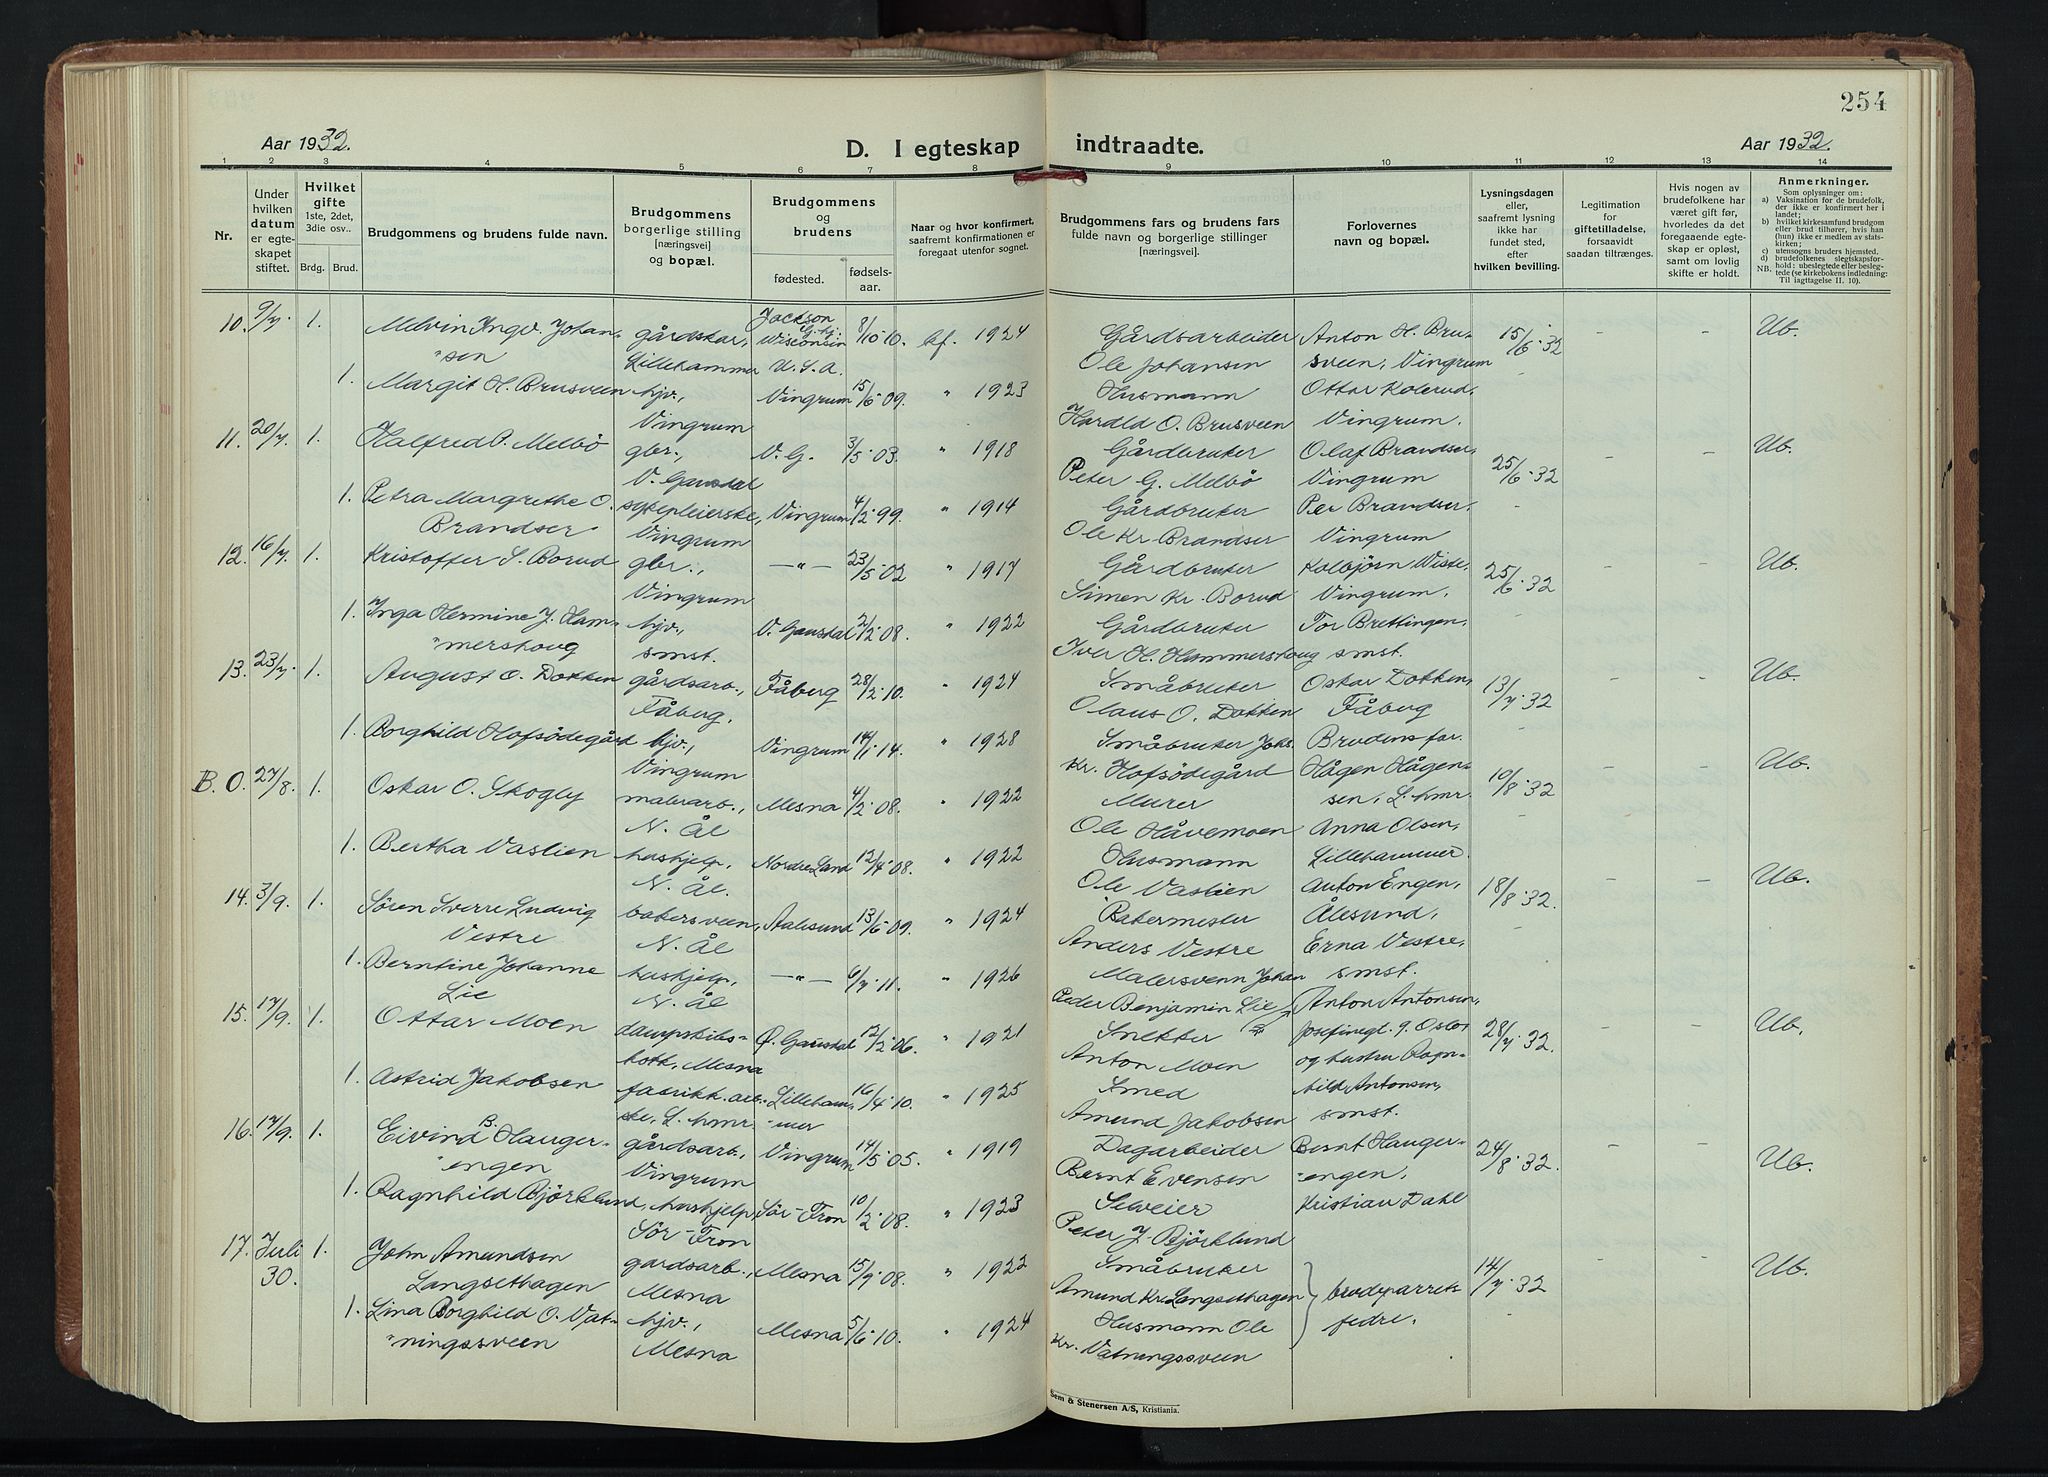 254
Aar 1932.
D. I egteskap indtraadte.
Aar 1932.
1 2 3 4 5 6 7 8 9 10 11 12 13 14
Nr.
Under hvilken datum er egteskapet stiftet.
Hvilket gifte 1ste, 2det, 3die osv..
Brdg. Brud.
Brudgommens og brudens fulde navn.
Brudgommens borgerlige stilling [næringsvei] og bopæl.
Brudgommens og brudens
fødested. fødselsaar.
Naar og hvor konfirmert, saafremt konfirmationen er foregaat utenfor sognet.
Brudgommens fars og brudens fars fulde navn og borgerlige stillinger [næringsvei].
Forlovernes navn og bopæl.
Lysningsdagen eller, saafremt lysning ikke har fundet sted, efter hvilken bevilling.
Legitimation for giftetilladelse, forsaavidt saadan tiltrænges.
Hvis nogen av brudefolkene har været gift før, hvorledes da det foregaaende egteskap er opløst, samt om lovlig skifte er holdt.
Anmerkninger.
Som oplysninger om:
a) Vaksination for de brudefolk, der ikke er konfirmert her i landet;
b) hvilket kirkesamfund brudgom eller brud tilhører, hvis han (hun) ikke er medlem av statskirken;
c) utensogns bruders hjemsted.
d) brudefolkenes slegtskapsforhold: ubeslegtede eller beslegtede (se kirkebokens indledning: Til iagttagelse II. 10).
NB.
10. 9/7. 1. Melvin Ingv. Johan-"sen gårdskar, Lillehammer Jackson Wisconsin U.S.A. 8/10·10. kf. 1924 Gårdsarbeider Ole Johansen Anton H. Brusveen, Vingrum 15/6·32 - - Ub.
1. Margit H. Brusveen hjv., Vingrum Vingrum 15/6·09. " 1923 Husmann Harald O. Brusveen Ottar Kolerud, Vingrum. -
11. 20/7. 1. Halfred P. Melbö gbr., V. Gausdal V. G. 3/5·03. " 1918 Gårdbruker Peter G. Melbö Olaf Brandser, Vingrum 25/6·32 - - Ub.
1. Petra Margrethe O. Brandser sykepleierske, Vingrum Vingrum 4/2·99. " 1914 Gårdbruker Ole Kr Brandser Per Brandser. Vingrum -
12. 16/7. 1. Kristoffer S. Borud gbr., Vingrum —"— 23/5·02 " 1917 Gårdbruker Simen Kr. Borud Kolbjörn Wiste, Vingrum. 25/6·32 - - Ub.
1. Inga Hermine J. Ham-"mershoug hjv., smst. V. Gausdal 2/2·08. " 1922 Gårdbruker Iver H. Hammershoug Tor Brettingen, smst. -
13. 23/7. 1. August O. Dokken gårdsarb., Fåberg. Fåberg 28/2·10. " 1924 Småbruker Olaus O. Dokken Oskar Dokken, Fåberg 13/7·32 - - Ub.
1. Borghild Hofsödegård hjv., Vingrum Vingrum 14/1·14. " 1928 Småbruker Johs. Kr. Hofsödegård Brudens far. -
B. O. 27/8. 1. Oskar O. Skogly malerarb., N. Ål Mesna 4/2·08. " 1922 Murer Ole Håvemoen Hågen Hågensen, L.hmr. 10/8·32 - - Ub.
1. Bertha Vaslien hushjelp, N. Ål. Nordre Land 12/4·08. " 1922 Husmann Ole Vaslien Anna Olsen, Lillehammer. -
14. 3/9. 1. Sören Sverre Ludvig Vestre bakersveen, N. Ål Aalesund 13/6·09. " 1924 Bakermester Anders Vestre Anton Engen, Ålesund, 18/8·32. - - Ub.
1. Berntine Johanne Lie hushjelp, N. Ål —"— 6/7·11. " 1926 Malersvenn Johan Peder Benjamin Lie Erna Vestre, smst. -
15. 17/9. 1. Ottar Moen dampskibskokk, Mesna Ö. Gausdal 12/2·06. " 1921 Snekker Anton Moen Anton Antonsen, Josefinegt. 9. Oslo og hustru Ragnhild Antonsen, smst. 28/7·32. - - Ub.
1. Astrid Jakobsen fabrikk.arb.ske, L.hmr. Lilleham-"mer 16/4·10. " 1925 Smed Amund Jakobsen
16. 17/9. 1. Eivind B. Hauger-"engen gårdsarb., Vingrum Vingrum 14/5·05. " 1919 Dagarbeider Bernt Evensen Bernt Haugerengen. 24/8·32. - - Ub.
1. Ragnhild Björklund, hushjelp, Sör-Fron Sör-Fron 10/2·08. " 1923 Selveier Peter J. Björklund Kristian Dahl
17. Juli 30. 1. John Amundsen Langsethagen gardsarb., Mesna Mesna 15/9·08. " 1922 Småbruker Amund Kr. Langsethagen brudeparrets fedre. 14/7·32 - - Ub.
1. Lina Borghild O. Vat-"ningssveen hjv., Mesna Mesna 5/6·10. " 1924 Husmann Ole Kr. Vatningssveen
Sem & Stenersen A/S, Kristiania.